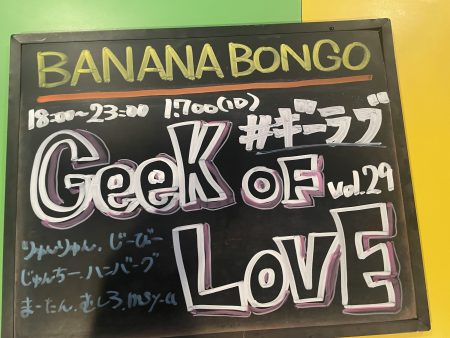 BANANA BONGO
18:00~23:00 1.700(1D)
#ギーラブ
GeeK OF
vol.29
LOVE
りゅんりゅん、じーびー
じゅんちー、ハンバーグ
まーたん、むしろ、msy-a